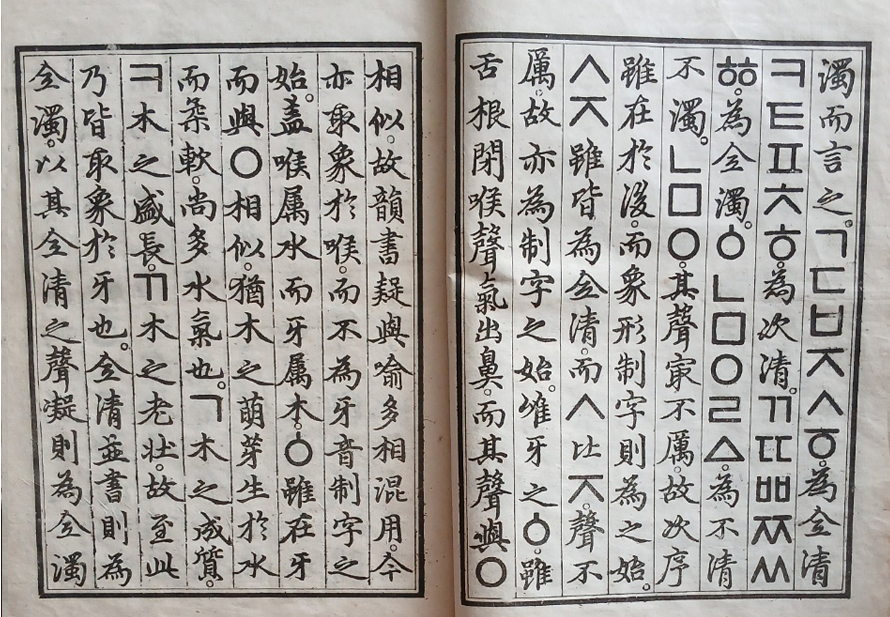 濁而言之。ㄱㄷㅂㅈㅅㆆ。為全清
ㅋㅌㅍㅊㅎ。為次清。ㄲㄸㅃㅉㅆ
ㆅ。為全濁。ㆁㄴㅁㅇㄹㅿ。為不清
不濁。ㄴㅁㅇ。其聲㝡不厲。故次序
雖在於後。而象形制字則為之始。
ㅅㅈ雖皆為全清。而ㅅ比ㅈ。聲不
厲。故亦為制字之始。唯牙之ㆁ。雖
舌根閉喉聲氣出鼻。而其聲與ㅇ
相似。故韻書疑與喻多相混用。今
亦取象於喉。而不為牙音制字之
始。盖喉属水而牙属木。ㆁ雖在牙
而與ㅇ相似。猶木之萌芽生於水
而柔軟。尚多水氣也。ㄱ木之成質。
ㅋ木之盛長。ㄲ木之老壯。故至此
乃皆取象於牙也。全清並書則為
全濁。以其全清之聲凝則為全濁